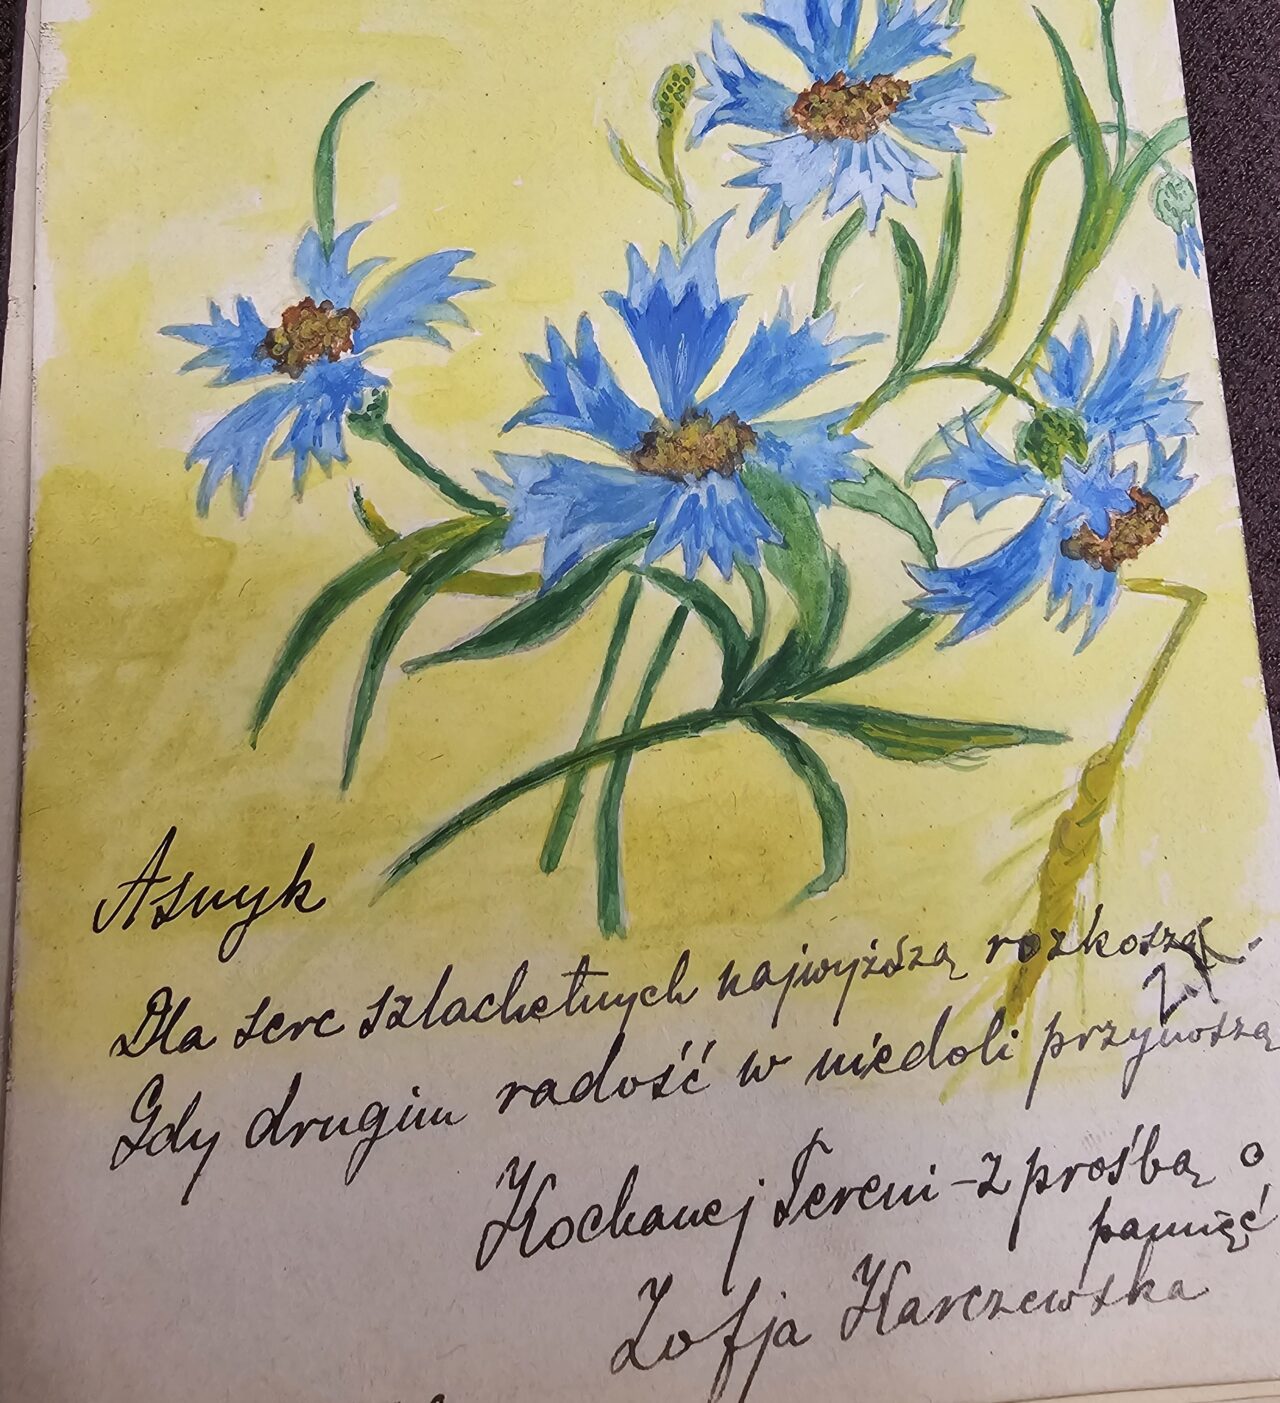 Asnyk
Dla serc szlachetnych najwyższą rozkoszą.
Gdy drugim radość w niedoli przynoszą
Kochanej Tereni - z prośbą o
pamięć
Zofja Karczewska